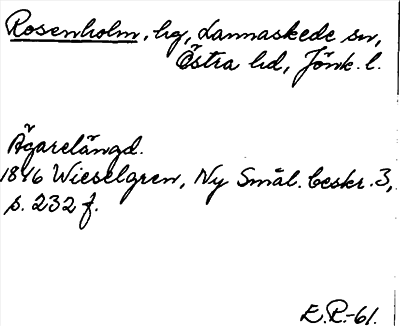 Rosenholm, hg, Lannaskede sn,
Östra hd, Jönk. l.
Ägarelängd.
1846 Wieselgren, Ny Smål. beskr. 3,
s. 232 f.
E.P.-61.